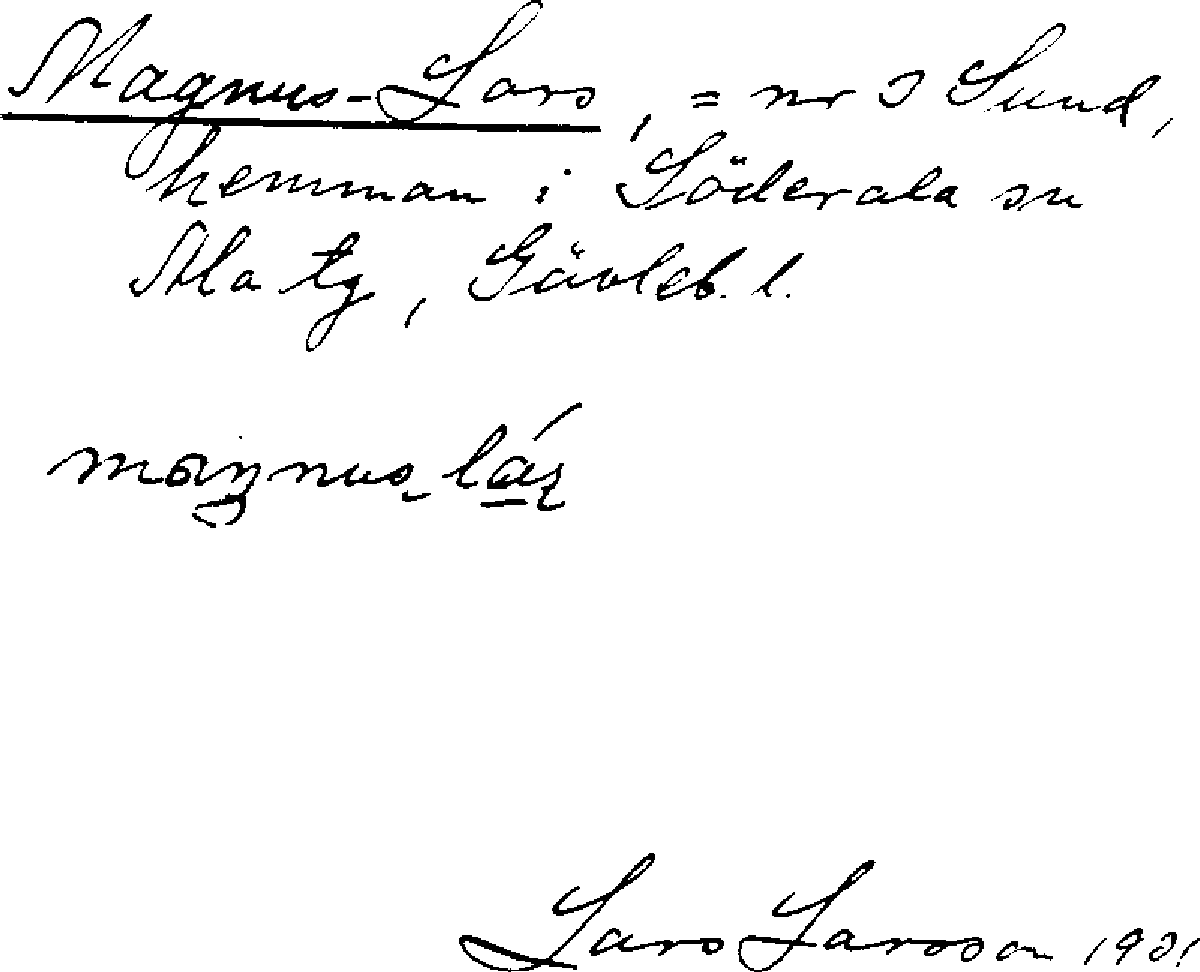 Magnus-Lars, = nr 3 Sund,
hemman i Söderala sn
Ala tg, Gävleb. l.
maŋnus lás̠
Lars Larsson 1931